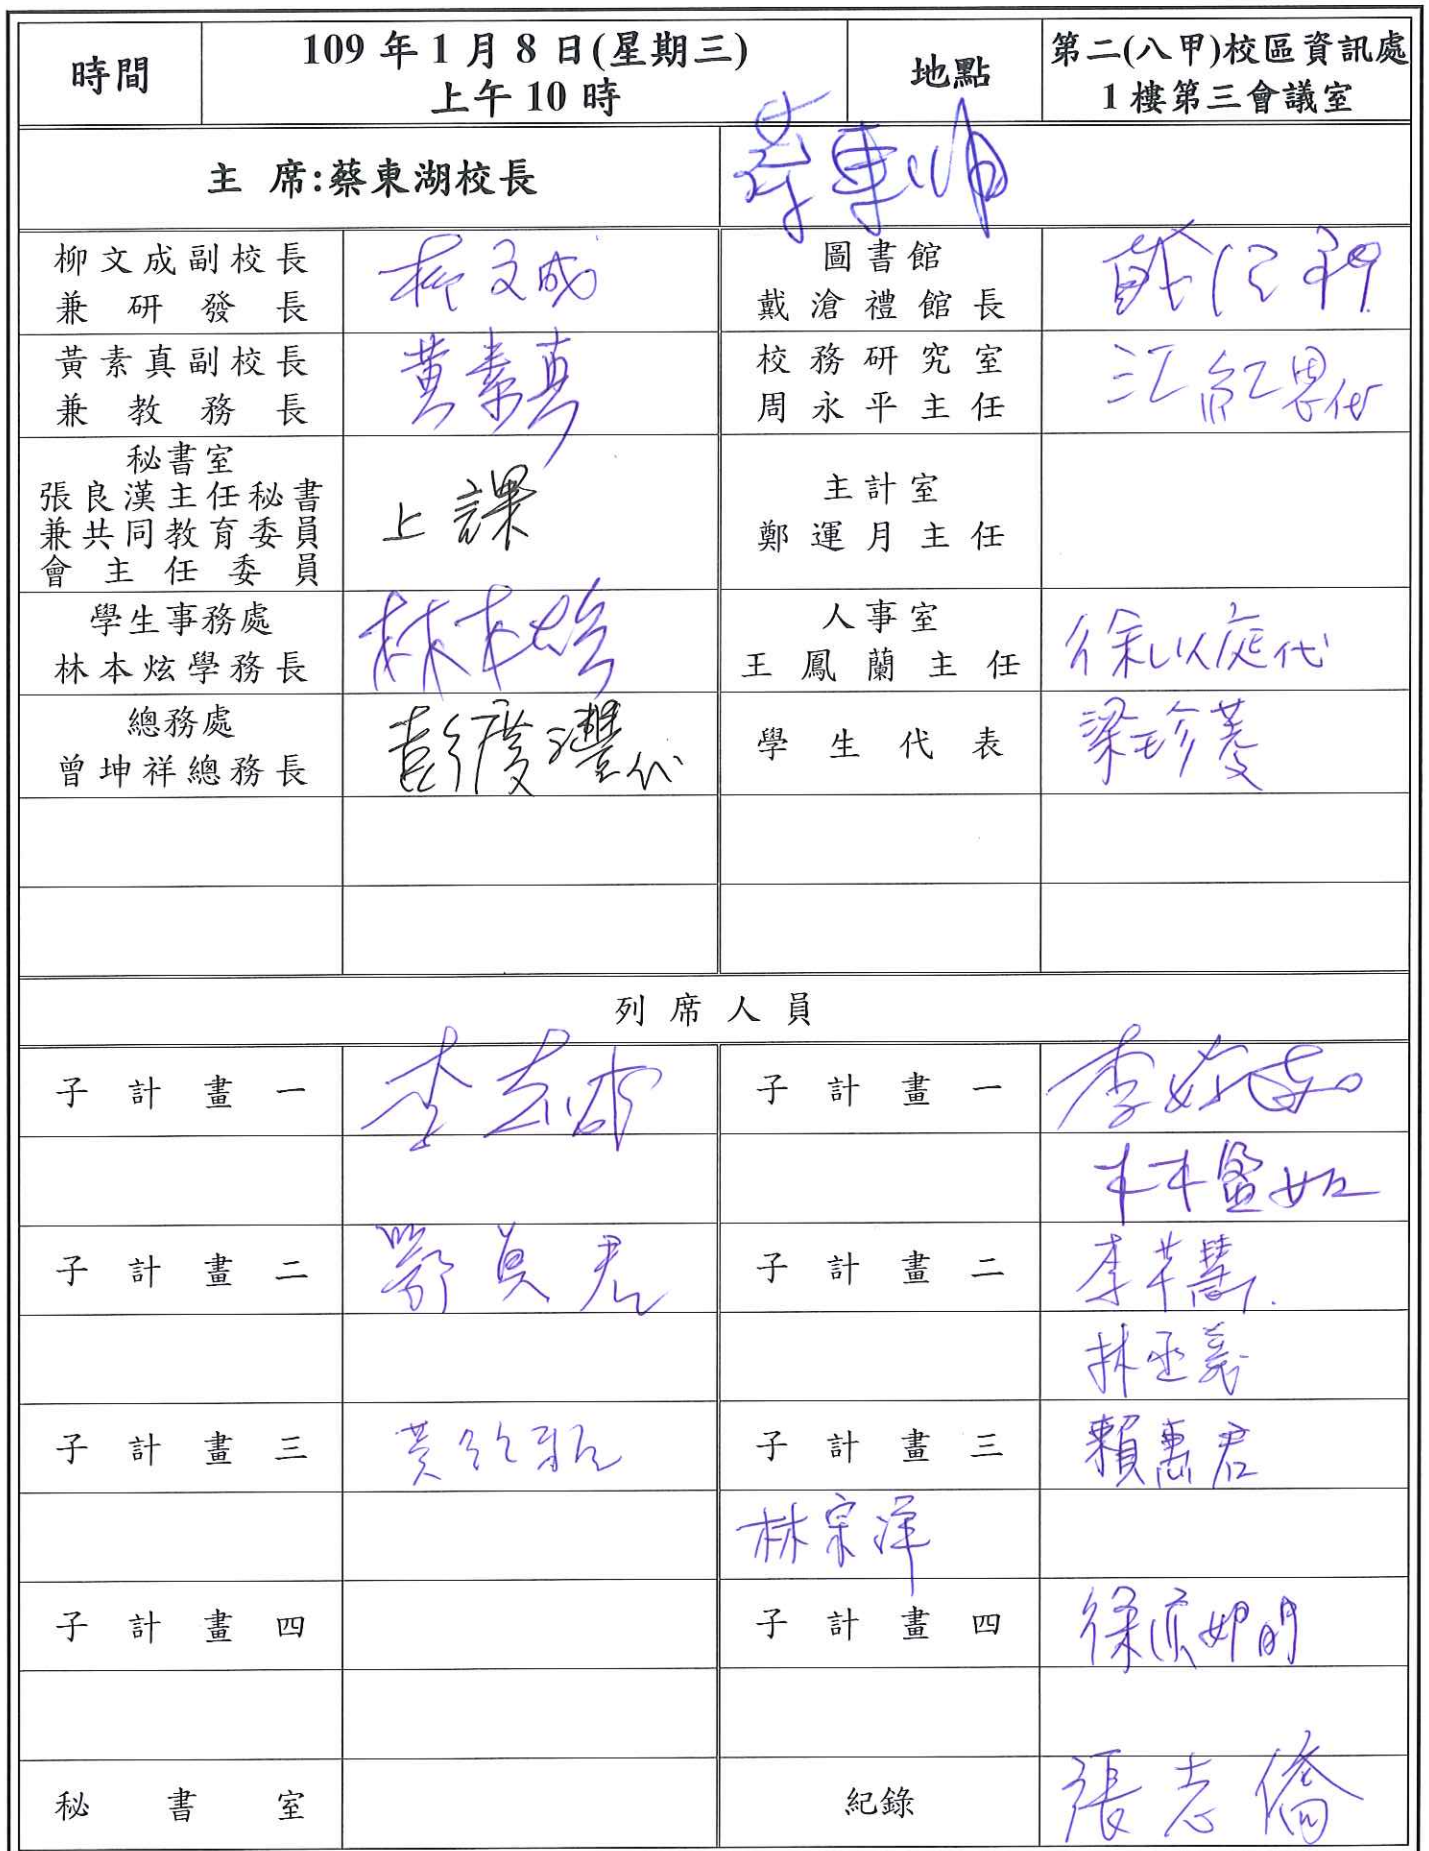 時間
109 年 1 月 8 日(星期三)
上午 10 時
地點
第二(八甲)校區資訊處
1 樓第三會議室
主 席:蔡東湖校長
蔡東湖
柳文成副校長
兼研發長
柳文成
圖書館
戴滄禮館長
戴滄禮
黃素真副校長
兼教務長
黃素真
校務研究室
周永平主任
江紅恩代
秘書室
張良漢主任秘書
兼共同教育委員
會主任委員
上課
主計室
鄭運月主任
學生事務處
林本炫學務長
林本炫
人事室
王鳳蘭主任
徐以庭代
總務處
曾坤祥總務長
彭慶灃代
學生代表
梁珍菱
列席人員
子計畫一
李
子計畫一
李
林盈如
子計畫二
鄂貞君
子計畫二
李芊慧
林丞
子計畫三
黃
子計畫三
賴惠君
林宗洋
子計畫四
子計畫四
徐
秘書室
紀錄
張志僑